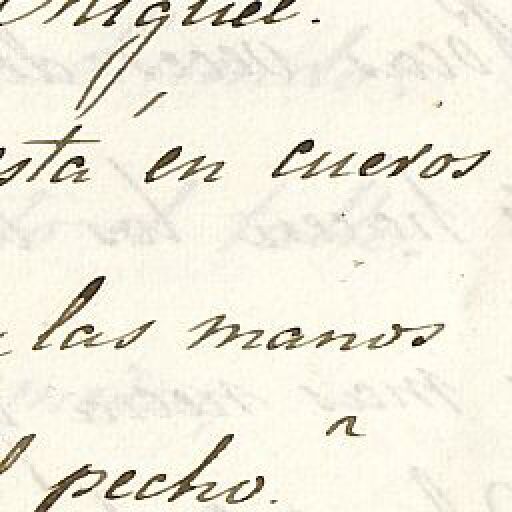 Miguel.
está en cueros
las manos
pecho.